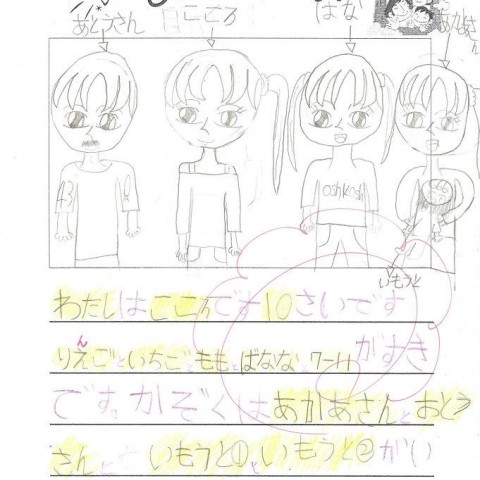 あとうさん こころ ばな あかあさん
oshkosh
いもうと
わたしはこころです10さいです
ん
りえごといちごとももとばななとケーキがすき
です。かぞくはあかあさんとおとう
さんと いもうと①といもうと②がい